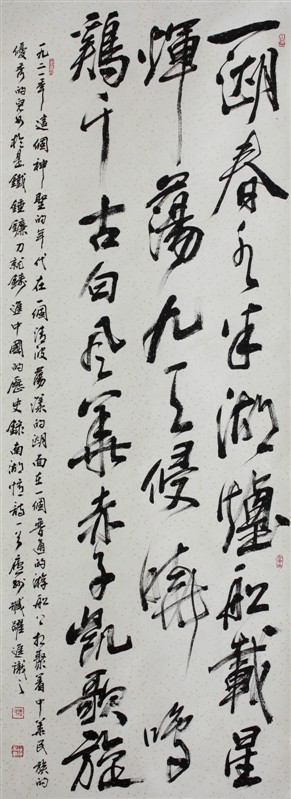 一湖春水半湖煙船載星
輝蕩九天侵曉鳴
鷄千古白風華赤子凱歌旋
一九二一年這個神聖的年代在一個清波蕩漾的湖面在一個普通的游船上相聚着中華民族的
優秀的兒女於是鐵錘鐮刀就鑄進中國的歷史錄南湖詩一首躍進識之